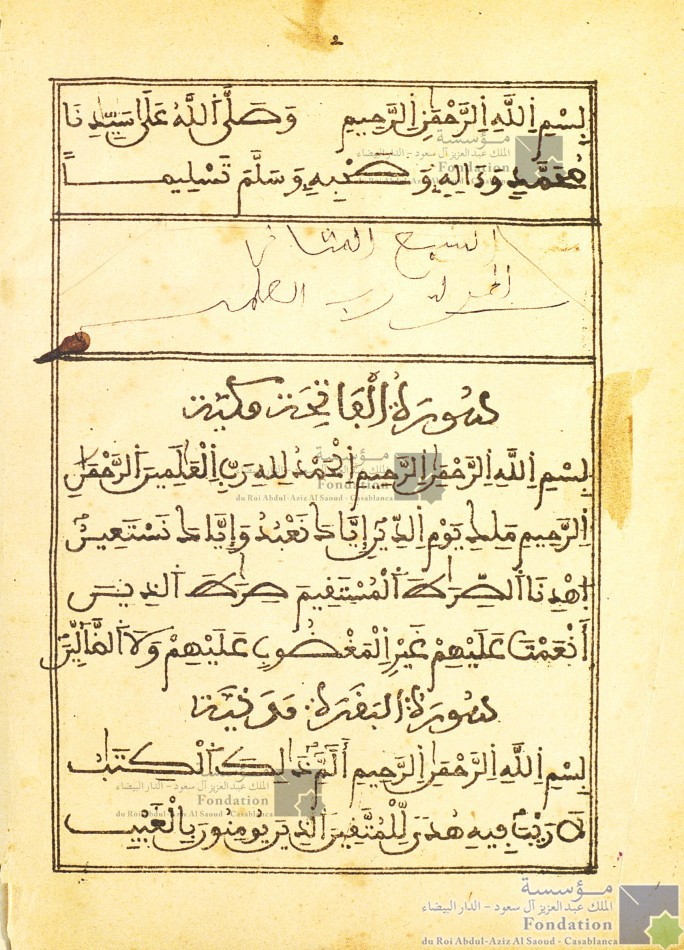 2
بِسْمِ اِللَّهِ اِلرَّحْمَٰنِ اِلرَّحِيمِ وَصَلَّى أَللَّهُ عَلَى سَيِّدِنَا
مُحَمَّدٍ وَءَالِهِ وَصَحْبِهِ وَسَلَّمَ تَسْلِيماً
السبع المثاني
الحمد لله رب العلمين
سُورَةُ الْفَاتِحَةِ مَكِّيَّة
بِسْمِ اِللَّهِ اِلرَّحْمَٰنِ اِلرَّحِيمِ اِلْحَمْدُ لِلهِ رَبِّ اِلْعَٰلَمِينَ اَلرَّحْمَٰنِ
اِلرَّحِيمِ مَلِكِ يَوْمِ اِلدِّينِ إِيَّاكَ نَعْبُدُ وَإِيَّاكَ نَسْتَعِينُ
اِهْدِنَا اَلصِّرَٰطَ اَلْمُسْتَقِيمَ صِرَٰطَ اَلذِينَ
أَنْعَمْتَ عَلَيْهِمْ غَيْرِ اِلْمَغْضُوبِ عَلَيْهِمْ وَلَا اَلضَّآلِّينَ
سُورَةُ الْبَقَرَةِ مَدَنِيَّة
بِسْمِ اِللَّهِ اِلرَّحْمَٰنِ اِلرَّحِيمِ أَلَمِّ ذَٰلِكَ اَلْكِتَٰبُ
لَا رَيْبَ فِيهِ هُدىً لِّلْمُتَّقِينَ اَلذِينَ يُومِنُونَ بِالْغَيْبِ
مؤسسة
الملك عبد العزيز آل سعود - الدار البيضاء
Fondation
du Roi Abdul-Aziz Al Saoud - Casablanca